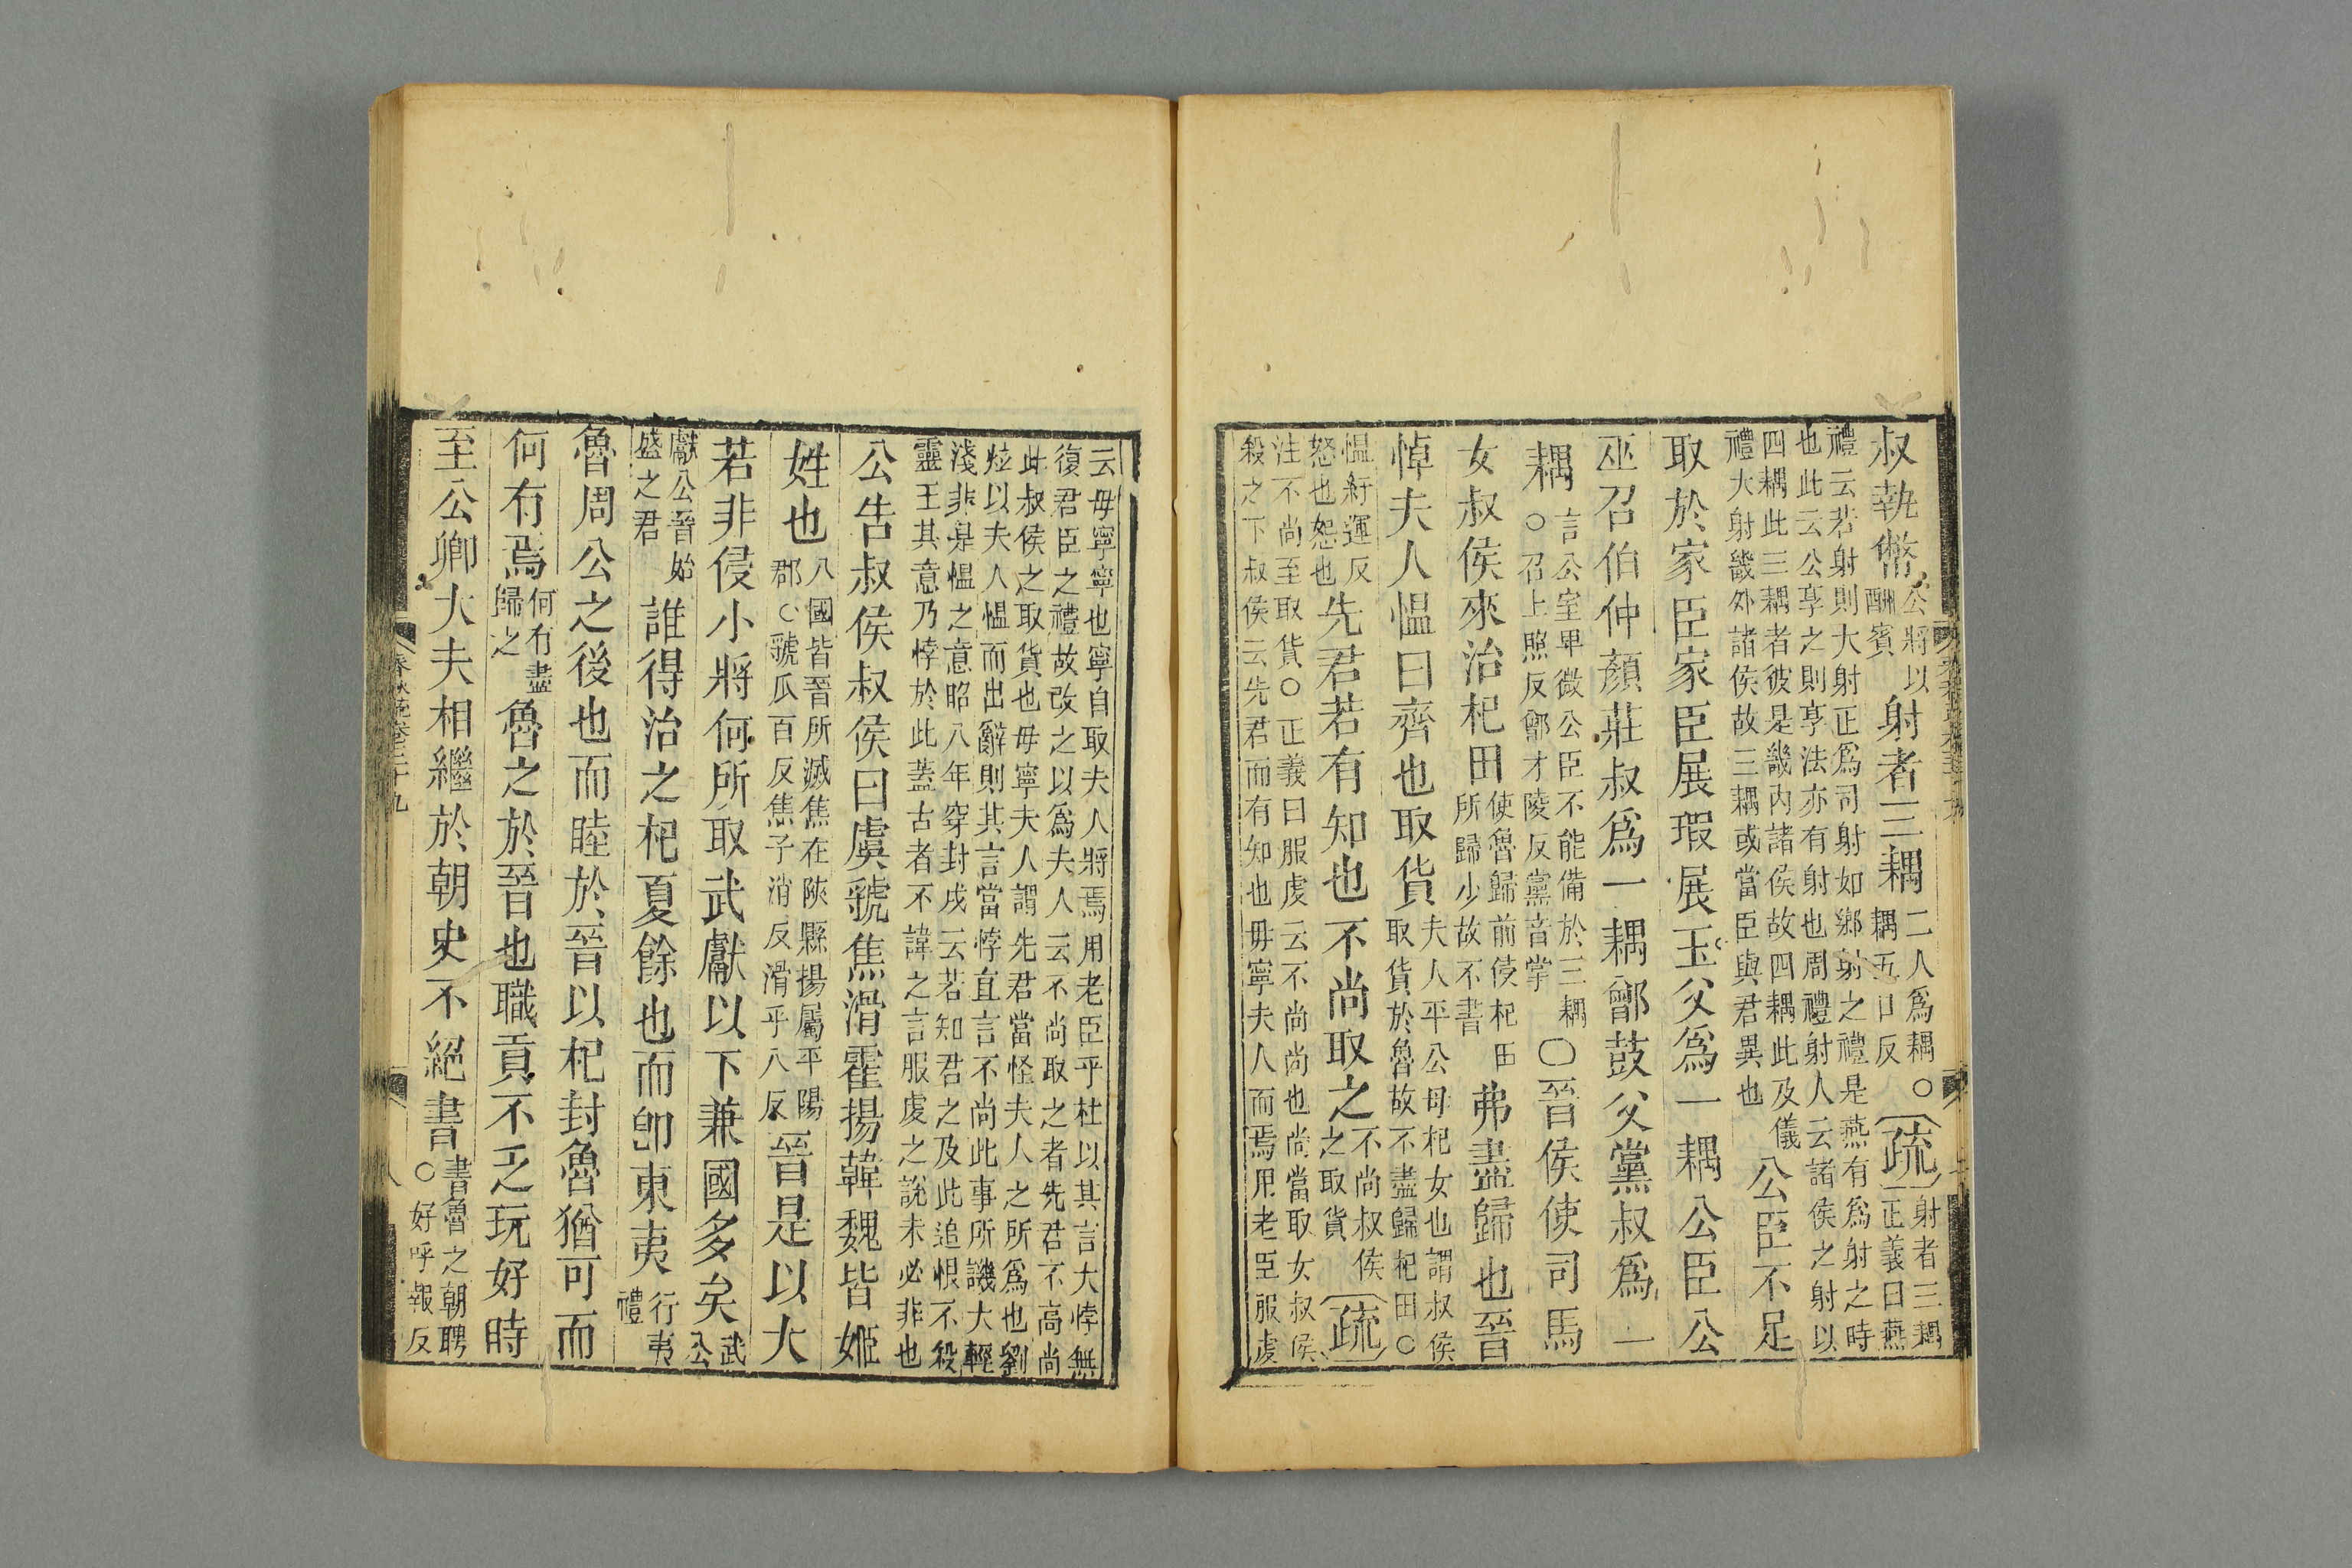 叔執幣公將以酬賓射者三耦二人爲耦○耦五口反疏射者三耦正義曰燕
禮云若射則大射正爲司射如鄉射之禮是燕有爲射之時
也此云公享之則享法亦有射也周禮射人云諸侯之射以
四耦此三耦者彼是畿內諸侯故四耦此及儀禮大射畿外諸侯故三耦或當臣與君異也公臣不足
取於家臣家臣展瑕展玉父爲一耦公臣公
巫召伯仲顏莊叔爲一耦鄫鼓父黨叔爲一
耦言公室卑微公臣不能備於三耦○召上照反鄫才陵反黨音掌○晉侯使司馬
女叔侯來治杞田使魯歸前侵杞田所歸少故不書弗盡歸也晉
悼夫人慍曰齊也取貨夫人平公母杞女也謂叔侯取貨於魯故不盡歸杞田○
慍紆運反怒也怨也先君若有知也不尚取之不尚叔侯之取貨疏
注不尚至取貨○正義曰服虔云不尚尚也尚當取女叔侯
殺之下叔侯云先君而有知也毋寧夫人而焉用老臣服虔
云毋寧寧也寧自取夫人將焉用老臣乎杜以其言大悖無
復君臣之禮故改之以爲夫人云不尚取之者先君不高尚
此叔侯之取貨也毋寧夫人謂先君當怪夫人之所爲也劉
炫以夫人慍而出辭則其言當悖直言不尚此事所譏大輕
淺非是慍之意昭八年穿封戌云若知君之及此追恨不殺
靈王其意乃悖於此蓋古者不諱之言服虔之說未必非也
公告叔侯叔侯曰虞虢焦滑霍揚韓魏皆姬
姓也八國皆晉所滅焦在陝縣揚屬平陽郡○虢瓜百反焦子消反滑乎八反晉是以大
若非侵小將何所取武獻以下兼國多矣武公
獻公晉始盛之君誰得治之杞夏餘也而卽東夷行夷禮
魯周公之後也而睦於晉以杞封魯猶可而
何有焉何有盡歸之魯之於晉也職貢不乏玩好時
至公卿大夫相繼於朝史不絕書書魯之朝聘○好呼報反
春秋疏卷三十九
八